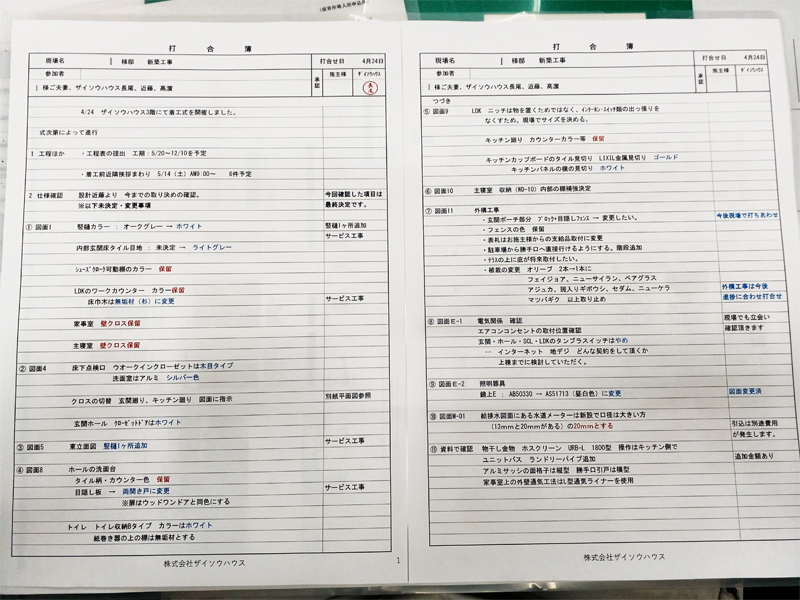 (保育所等入所申込
打 合 簿
現場名 様邸 新築工事 打合せ日 4月24日
参加者 承認 施主様 ザイソウハウス
様ご夫妻、ザイソウハウス長尾、近藤、高濵
4/24 ザイソウハウス3階にて着工式を開催しました。
式次第によって進行
1 工程ほか ・工程表の提出 工期:5/20~12/10を予定
・着工前近隣挨拶まわり 5/14(土)AM9:00~ 6件予定
2 仕様確認 設計近藤より 今までの取り決めの確認。 今回確認した項目は
※以下未決定・変更事項 最終決定です。
① 図面1 竪樋カラー : オークグレー → ホワイト 竪樋1ヶ所追加
サービス工事
内部玄関床タイル目地 : 未決定 → ライトグレー
シューズクローク可動棚のカラー 保留
LDKのワークカウンター カラー保留
床巾木は無垢材(杉)に変更 サービス工事
家事室 壁クロス保留
主寝室 壁クロス保留
② 図面4 床下点検口 ウオークインクローゼットは木目タイプ
洗面室はアルミ シルバー色
クロスの切替 玄関廻り、キッチン廻り 図面に指示 別紙平面図参照
玄関ホール クローゼットドアはホワイト
③ 図面5 東立面図 竪樋1ヶ所追加 サービス工事
④ 図面8 ホールの洗面台
タイル柄・カウンター色 保留
目隠し板 → 両開き戸に変更 サービス工事
※扉はウッドワンドアと同色にする
トイレ トイレ収納Bタイプ カラーはホワイト
紙巻き器の上の棚は無垢材とする
株式会社ザイソウハウス
1
打 合 簿
現場名 様邸 新築工事 打合せ日 4月24日
参加者 承認 施主様 ザイソウハウス
様ご夫妻、ザイソウハウス長尾、近藤、高濵
つづき
⑤ 図面9 LDK ニッチは物を置くためではなく、インターホン・スイッチ類の出っ張りを
なくすため。現場でサイズを決める。
キッチン廻り カウンターカラー等 保留
キッチンカップボードのタイル見切り LIXIL金属見切り ゴールド
キッチンパネルの横の見切り ホワイト
⑥ 図面10 主寝室 収納(WD-10)内部の棚補強決定
⑦ 図面11 外構工事
・玄関ポーチ部分 ブロック+目隠しフェンス → 変更したい。 今後現場で打ちあわせ
・フェンスの色 保留
・表札はお施主様からの支給品取付に変更
・駐車場から勝手口へ直接行けるようにする。階段追加
・テラスの上に庇が将来取付したい。
・植栽の変更 オリーブ 2本→1本に
フェイジョア、ニューサイラン、ベアグラス 外構工事は今後
アジュカ、斑入りギボウシ、セダム、ニューケラ 進捗に合わせ打合せ
マツバギク 以上取り止め
⑧ 図面E-1 電気関係 確認 現場でも立会い
エアコンコンセントの取付位置確認 確認頂きます
玄関・ホール・SCL・LDKのタンブラスイッチはやめ
… インターネット 地デジ どんな契約をして頂くか
上棟までに検討していただく。
⑨ 図面E-2 照明器具 図面変更済
鏡上E : AB50330 → AS51713(昼白色)に変更
⑩ 図面W-01 給排水図面にある水道メーターは新設で口径は大きい方 引込は別途費用
(13mmと20mmがある)の20mmとする が発生します。
⑪ 資料で確認 物干し金物 ホスクリーン URB-L 1800型 操作はキッチン側で
ユニットバス ランドリーパイプ追加 追加金額あり
アルミサッシの面格子は縦型 勝手口引戸は横型
家事室上の外壁通気工法はL型通気ライナーを使用
株式会社ザイソウハウス